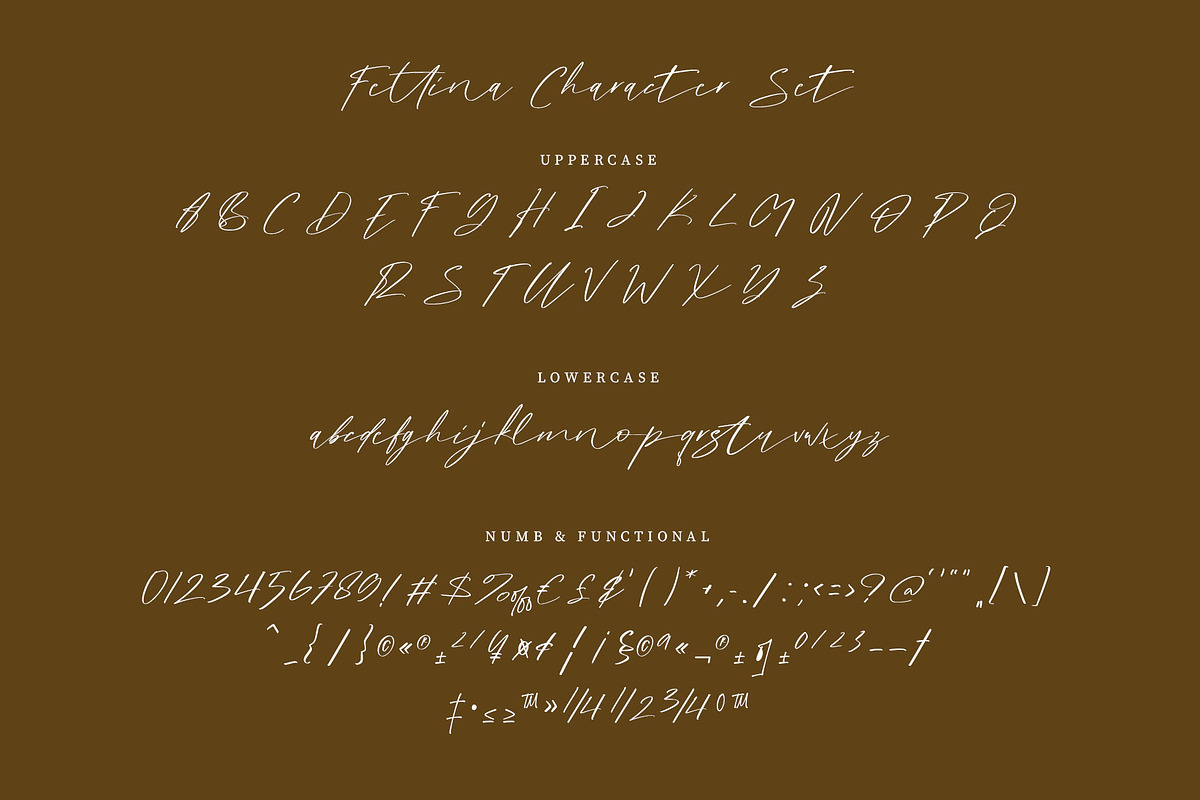 Fettina Character Set
UPPERCASE
A B C D E F G H I J K L M N O P Q
R S T U V W X Y Z
LOWERCASE
abcdefghijklmnopqrstuvwxyz
NUMB & FUNCTIONAL
0123456789!#$%‰€£¢'()*+,-./:;<=>?@‘'“”„[\]
^_{/}©«®±²¹¥¤¢¦¡§©ª«¬®±¶±⁰¹²³–—†
‡•≤≥™»1/41/23/40™